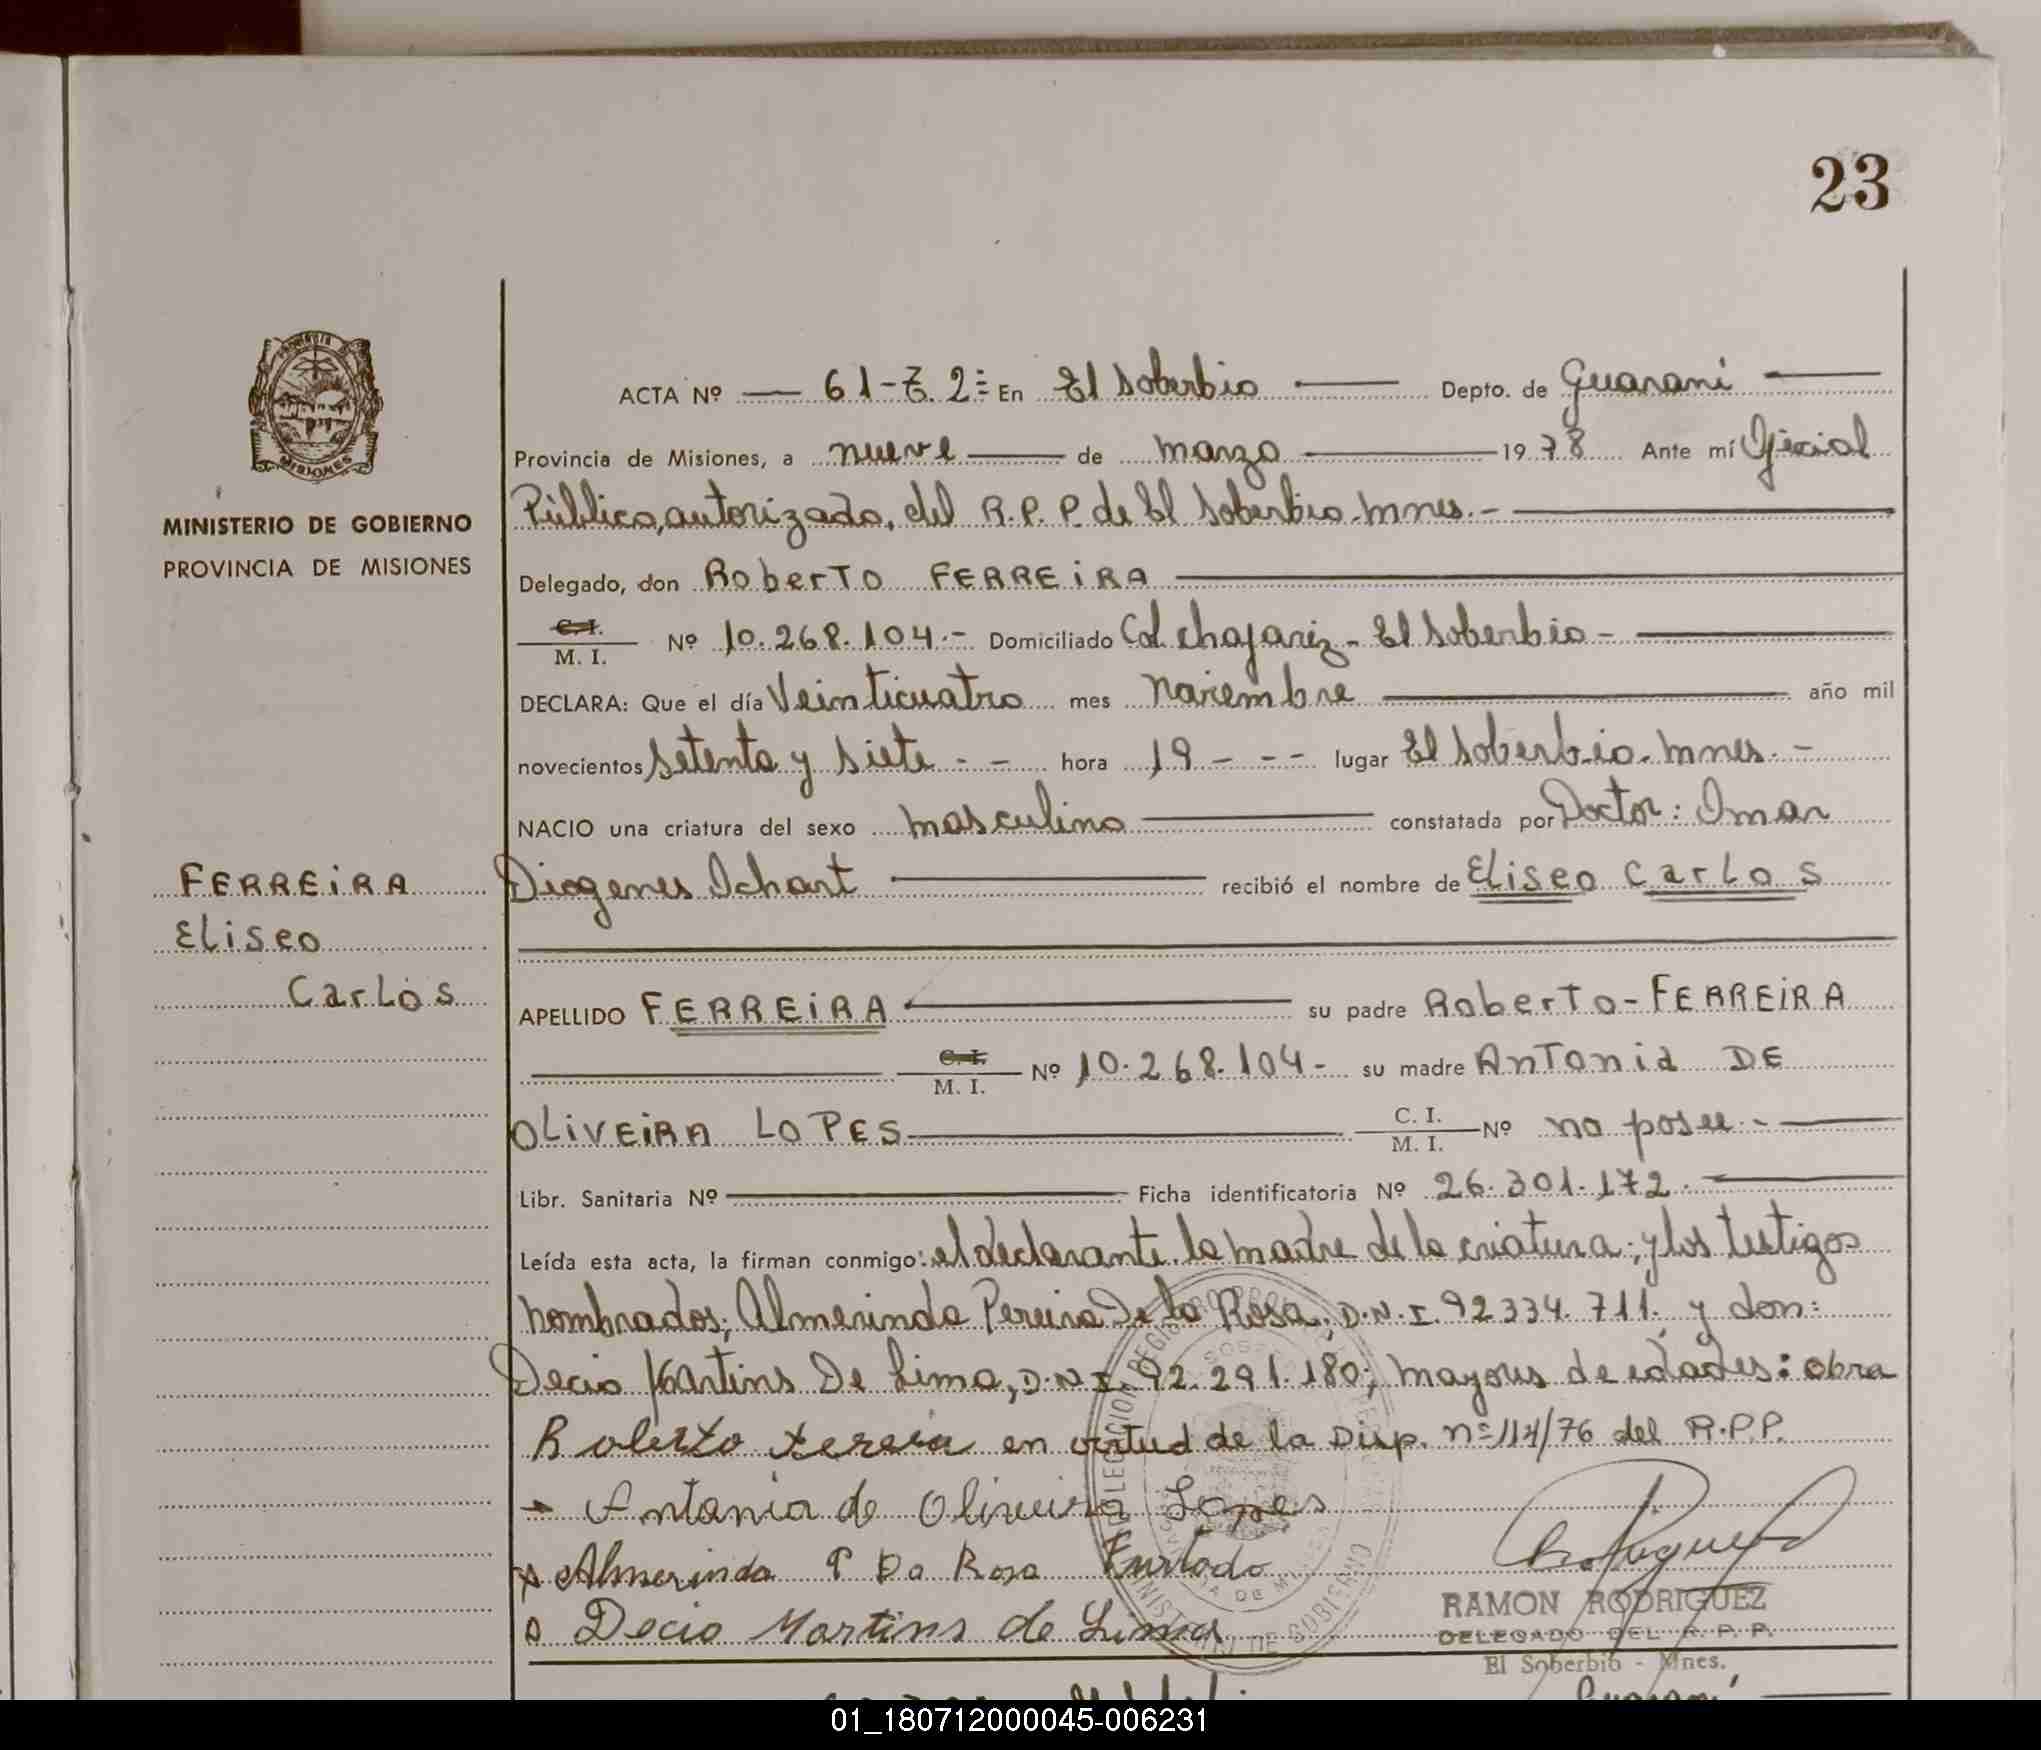 23
ACTA Nº — 61-T. 2= En El Soberbio — Depto. de Guaraní —
Provincia de Misiones, a nueve — de marzo — 1978 Ante mí Oficial
Público, autorizado, del R.P.P. de El Soberbio-Mnes.-
MINISTERIO DE GOBIERNO
PROVINCIA DE MISIONES
MISIONES
Delegado, don Roberto FERREIRA
C. I.
M. I. Nº 10.268.104.- Domiciliado Col. Chafariz - El Soberbio -
DECLARA: Que el día Veinticuatro mes Noviembre — año mil
novecientos Setenta y Siete - - hora 19 - - - lugar El Soberbio-Mnes.-
NACIO una criatura del sexo masculino — constatada por Doctor: Omar
Diogenes Ichart — recibió el nombre de Eliseo Carlos
FERREIRA
Eliseo
Carlos
APELLIDO FERREIRA — su padre Roberto-FERREIRA
C. I.
M. I. Nº 10.268.104- su madre Antonia DE
OLIVEIRA LOPES — C. I.
M. I. Nº no posee.-
Libr. Sanitaria Nº — Ficha identificatoria Nº 26.301.172.
Leída esta acta, la firman conmigo: el declarante, la madre de la criatura; y los testigos
nombrados; Almerinda Pereira De la Rosa, D.N.I. 92334.711. y don:
Decio Martins De Lima, D.N.I. 92.291.180; mayores de edades: obra
Roberto Fereira en virtud de la Disp. nº 114/76 del R.P.P.
Antania de Oliveira Lopes
Almerinda P Da Rosa Furtado
Decio Martins de Lima
RAMON RODRIGUEZ
DELEGADO DEL R. P. P.
El Soberbio - Mnes.
01_180712000045-006231